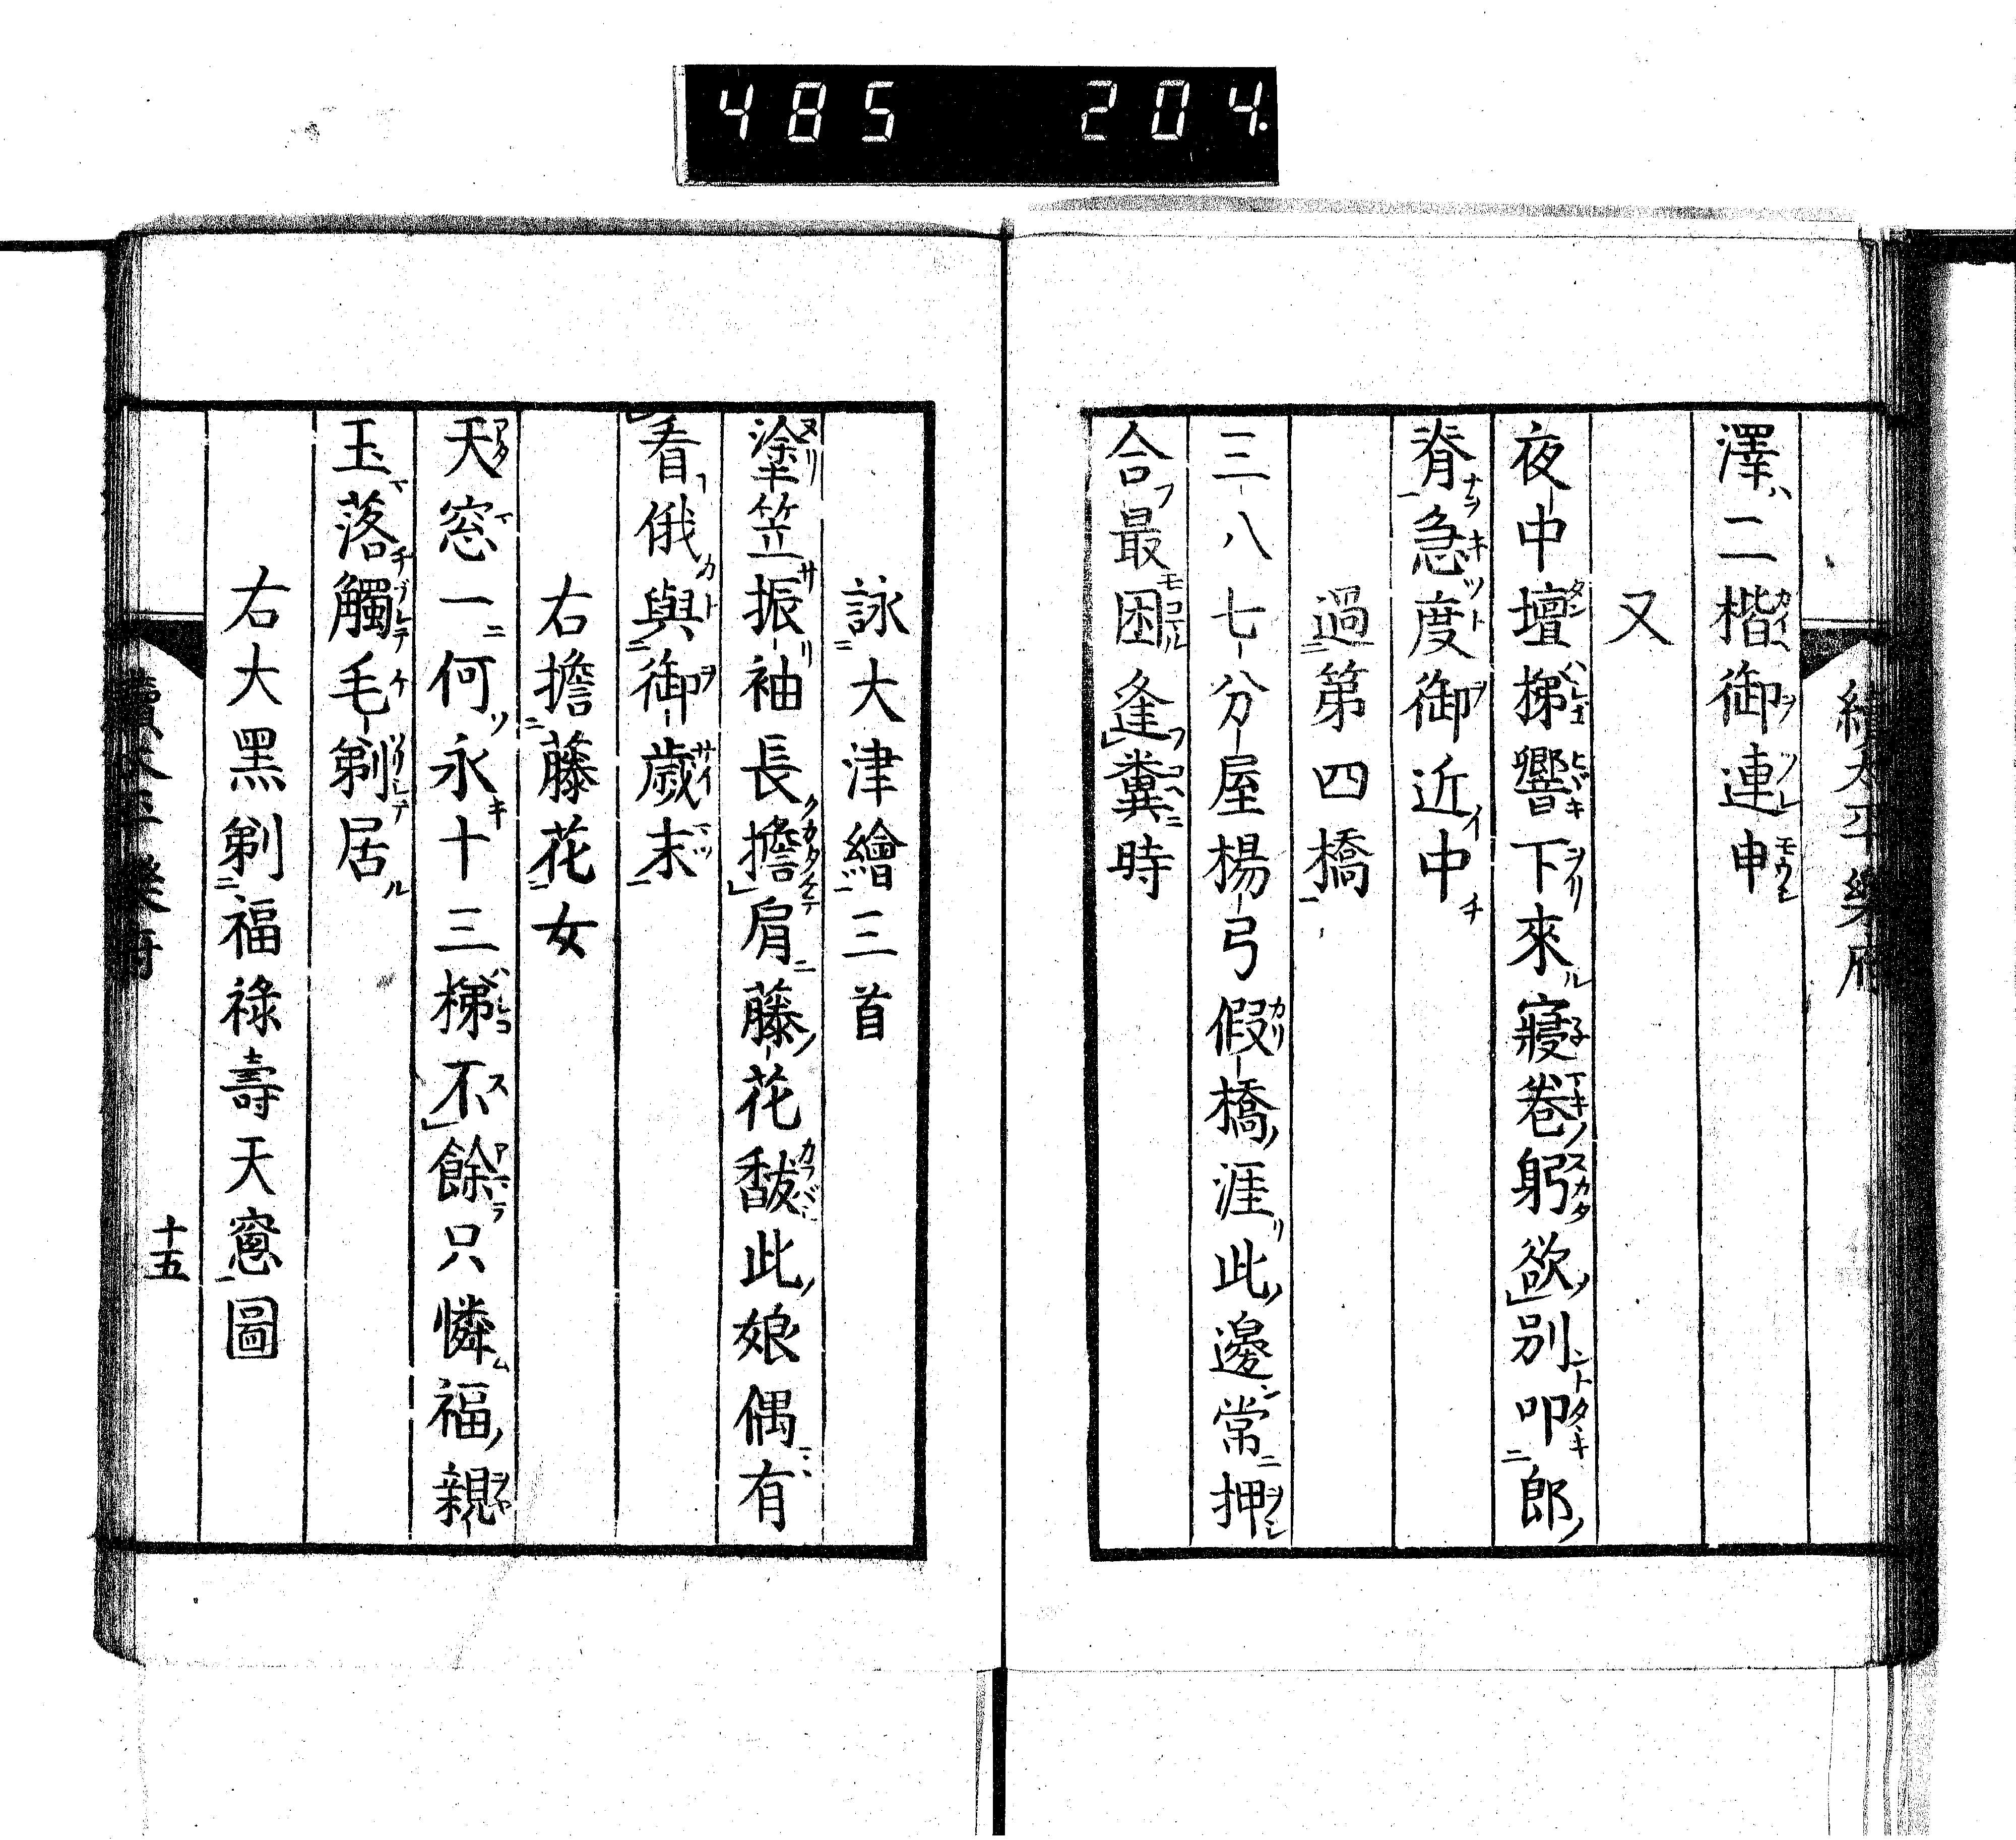 485 204
續太平樂府
澤二楷御連申
又
夜中壇梯響下來寢卷躬欲別叩郎
脊急度御近中
過第四橋
三八七分屋楊弓假橋涯此邊常押
合最困逢糞時
詠大津繪三首
塗笠振袖長擔肩藤花馥此娘偶有
看俄與御歲末
右擔藤花女
天窓一何永十三梯不餘只憐福親
玉落觸毛剃居
右大黑剃福祿壽天窻圖
十五